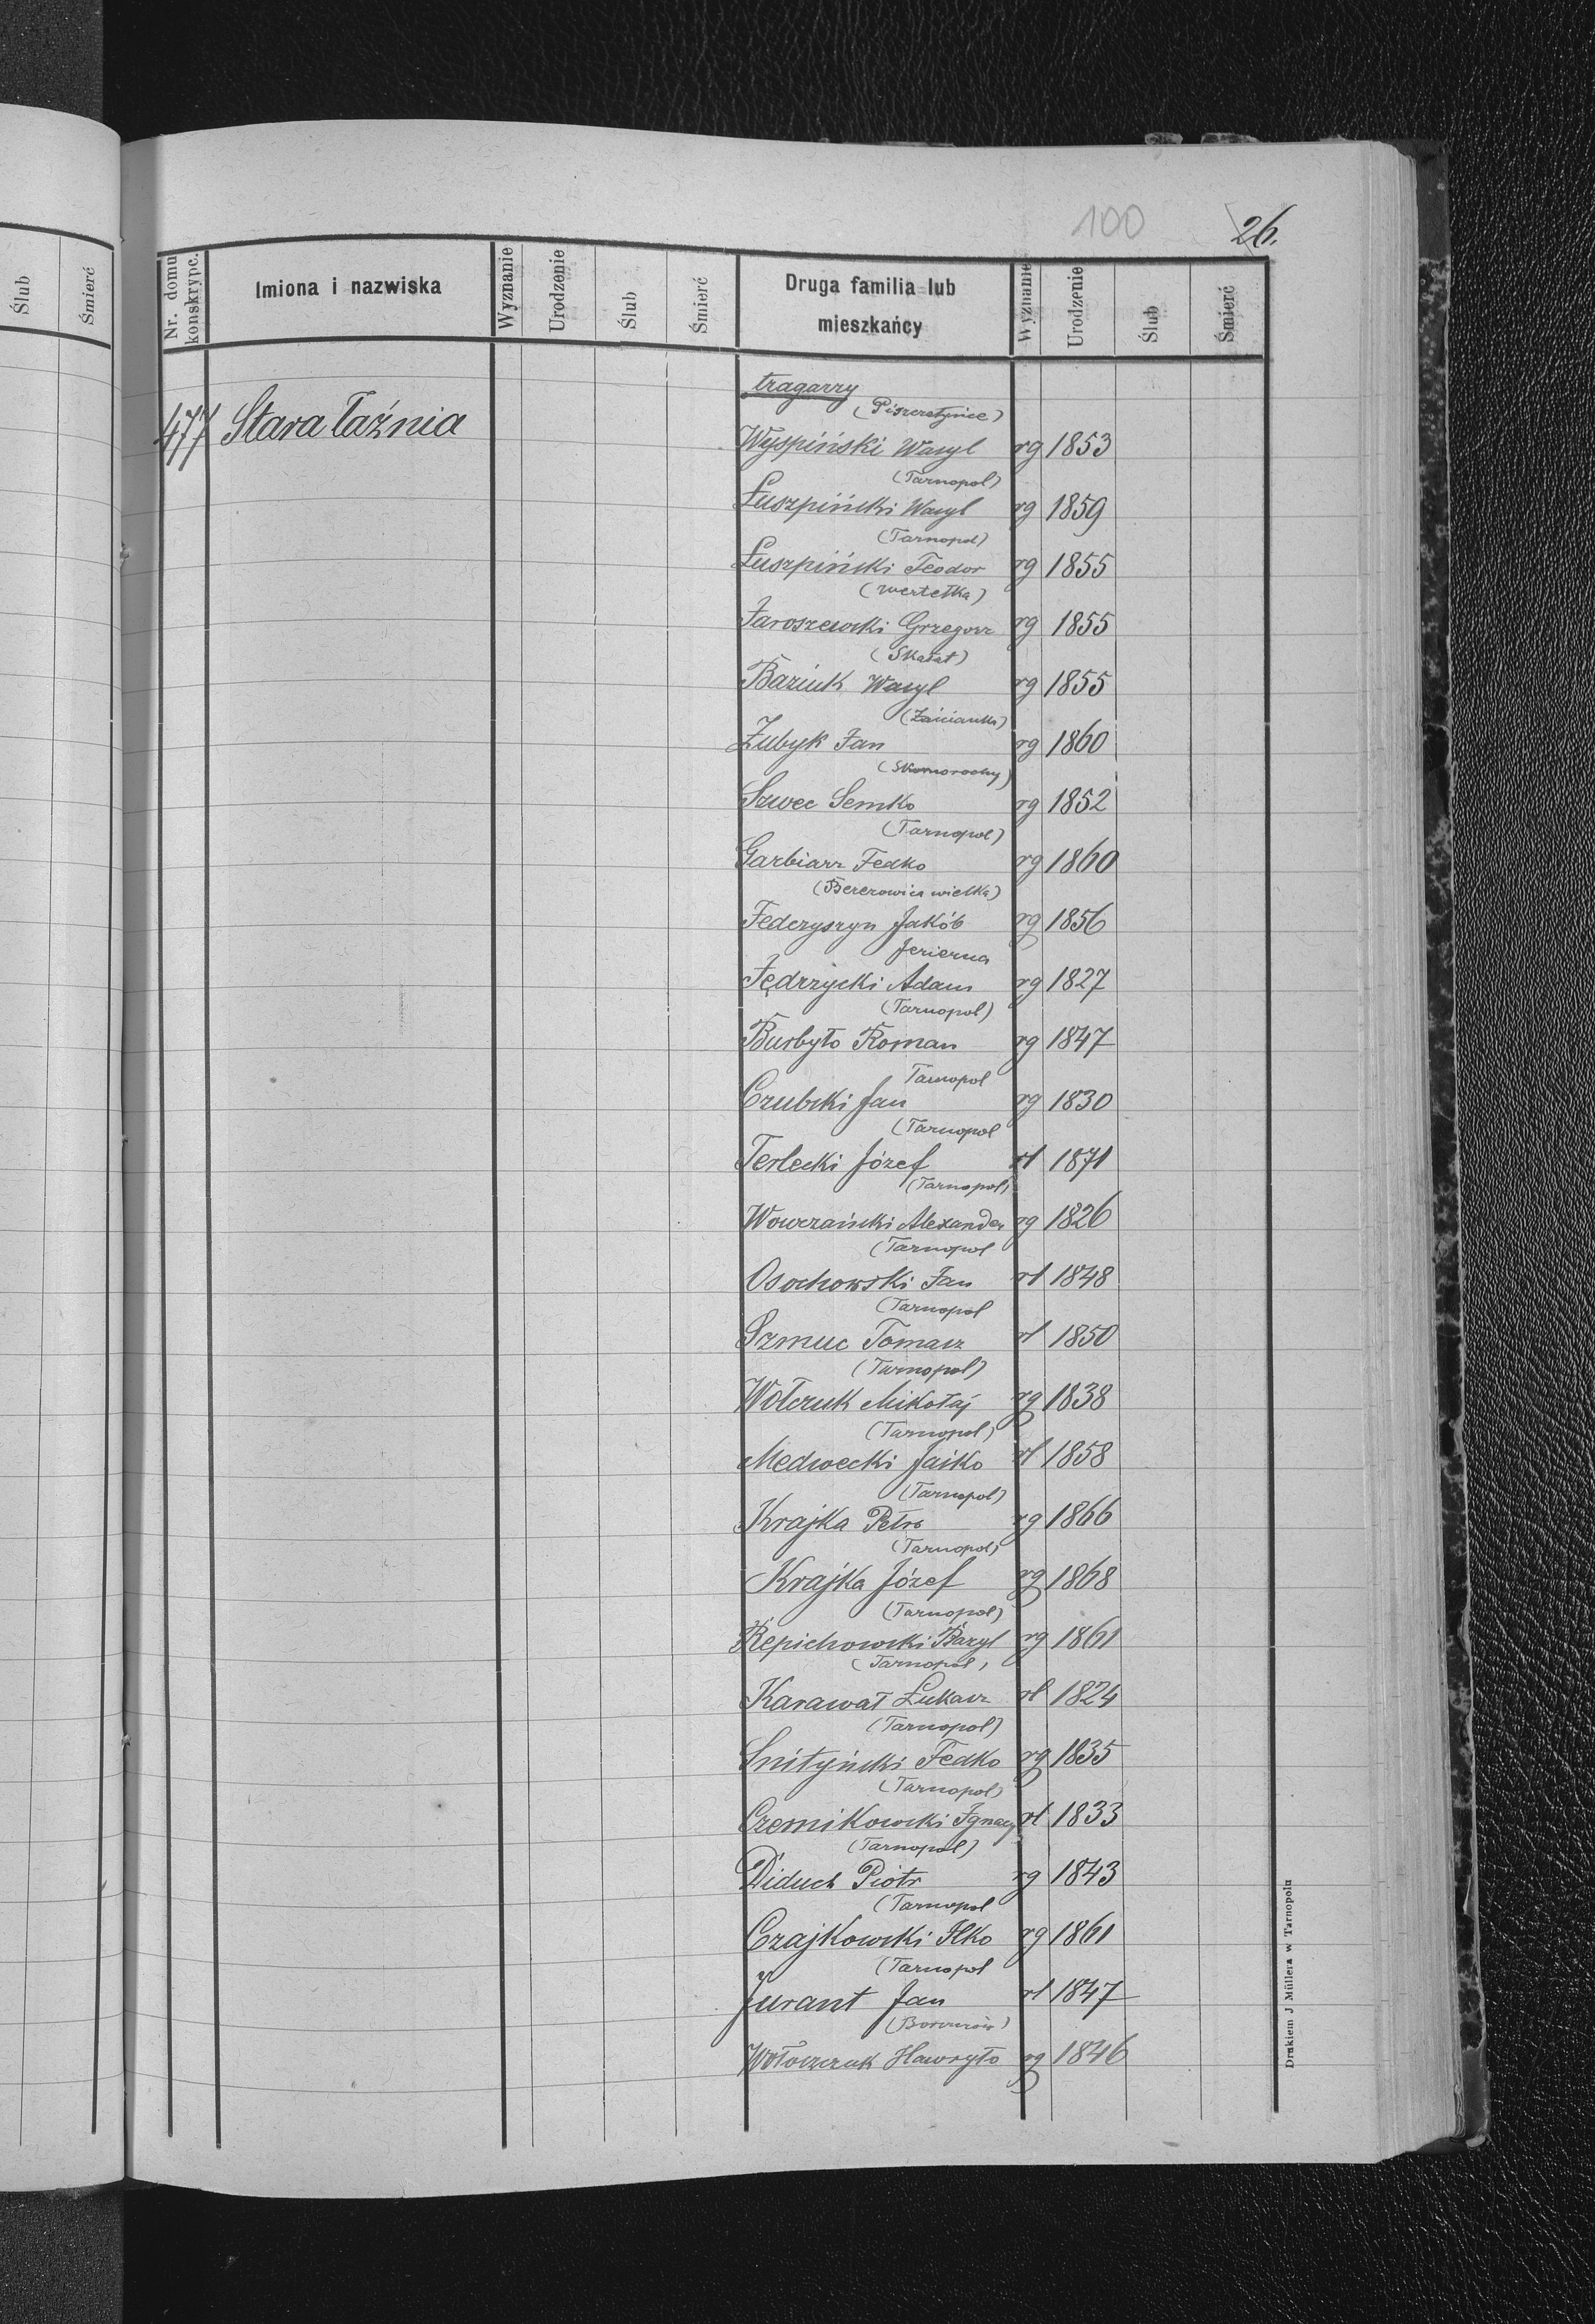 100
26.
Ślub
Śmierć
Nr. domu konskrypc.
Imiona i nazwiska
Wyznanie
Urodzenie
Ślub
Śmierć
Druga familia lub
mieszkańcy
Wyznanie
Urodzenie
Ślub
Śmierć
tragarzy
477 Stara Łaźnia
Wyspiński Wasyl rg 1853
(Tarnopol)
Łuszpiński Wasyl rg 1859
(Tarnopol)
Łuszpiński Teodor rg 1855
(Wertełka)
Jaroszewski Grzegorz rg 1855
(Skałat)
Baziuk Wasyl rg 1855
(Zaścianka)
Zubyk Jan rg 1860
(Skomorochy)
Szwec Semko rg 1852
(Tarnopol)
Garbiarz Fedko rg 1860
(Berezowica wielka)
Fedczyszyn Jakób rg 1856
Jezierna
Jędrzycki Adam rg 1827
(Tarnopol)
Burbyło Roman rg 1847
Tarnopol
Czubski Jan rg 1830
(Tarnopol
Terlecki Józef rł 1871
(Tarnopol)
Wowczański Alexander rg 1826
(Tarnopol
Osochowski Jan rł 1848
(Tarnopol
Szmuc Tomasz rł 1850
(Tarnopol)
Wołczuk Mikołaj rg 1838
(Tarnopol)
Medwecki Jaśko rł 1858
(Tarnopol)
Krajka Petro rg 1866
(Tarnopol)
Krajka Józef rg 1868
(Tarnopol)
Repichowski Bazyl rg 1861
(Tarnopol)
Karawał Łukasz rł 1824
(Tarnopol)
Snityński Fedko rg 1835
(Tarnopol)
Czernikowski Ignacy rł 1833
(Tarnopol)
Diduch Piotr rg 1843
(Tarnopol
Czajkowski Ilko rg 1861
(Tarnopol
Jurant Jan rł 1847
Wołoszczuk Hawryło rg 1846
Drukiem J Müllera w Tarnopolu